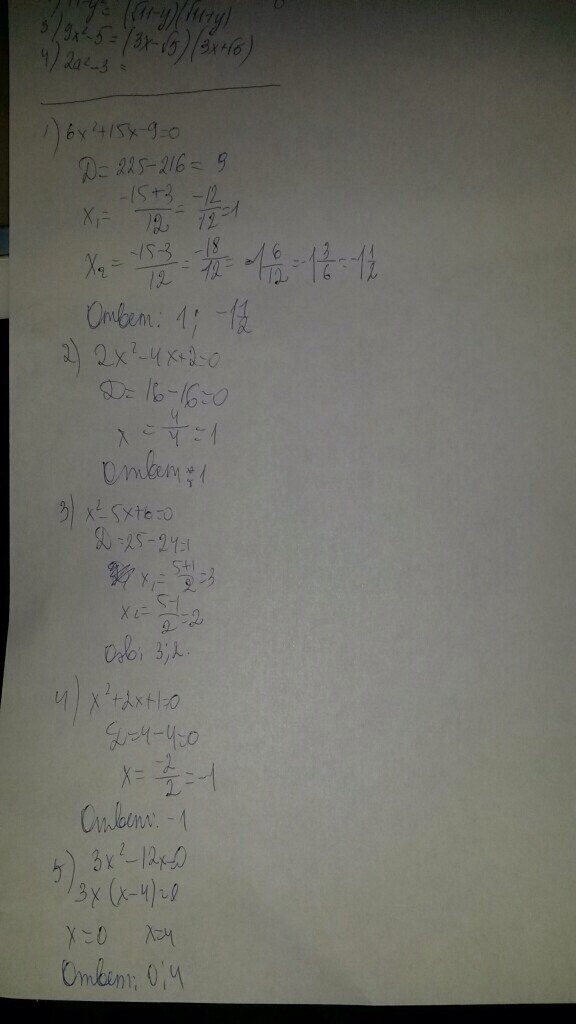 3) 9x²-5=(3x-√5)(3x+√5)
4) 2a²-3=
1) 6x²+15x-9=0
D=225-216=9
x₁=(-15+3)/12=-12/12=1
x₂=(-15-3)/12=-18/12=-1 6/12=-1 3/6=-1 1/2
Ответ: 1; -1 1/2
2) 2x²-4x+2=0
D=16-16=0
x=4/4=1
Ответ: 1
3) x²-5x+6=0
D=25-24=1
x₁=(5+1)/2=3
x₂=(5-1)/2=2
Отв: 3;2.
4) x²+2x+1=0
D=4-4=0
x=-2/2=-1
Ответ: -1
5) 3x²-12x=0
3x(x-4)=0
x=0 x=4
Ответ: 0;4